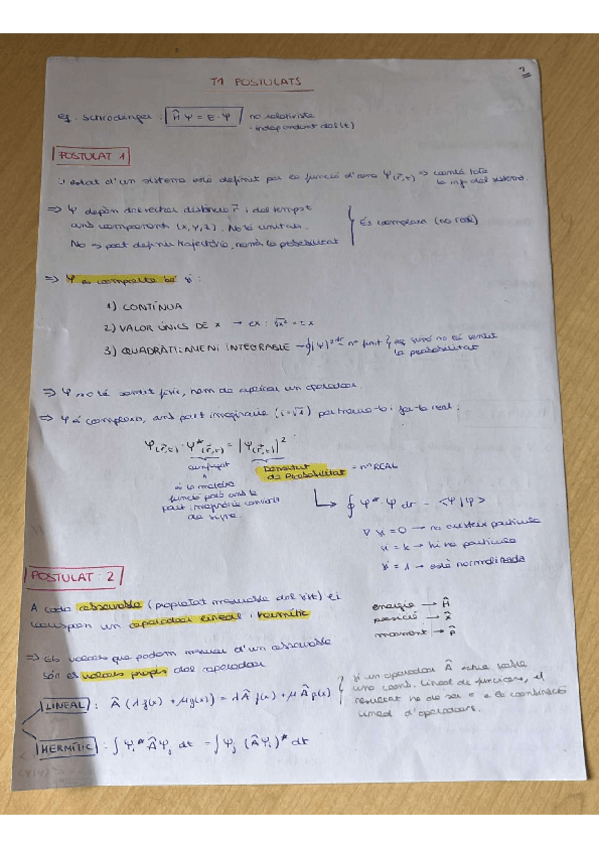 T1 POSTULATS
eq. Schrodinger: Ĥ Ψ = E · Ψ no relativista
· independent del (t)
POSTULAT 1
L'estat d'un sistema està definit per la funció d'ona Ψ(r⃗,t) ⇒ conté tota
la inf del sistema.
⇒ Ψ depèn del vector distància r⃗ i del temps t
amb components (x, y, z). No té unitats.
No → pot definir trajectòria, només la probabilitat
És complexa (no real)
⇒ Ψ es comporta bé si:
1) CONTÍNUA
2) VALOR ÚNICS DE x → ex: √x² = ± x
3) QUADRÀTICAMENT INTEGRABLE → ∮|Ψ|² dτ = nº finit
sinó no té sentit
la probabilitat
⇒ Ψ no té sentit físic, hem de aplicar un operador.
⇒ Ψ és complexa, amb part imaginaria (i = √-1) per treure-la i fer-la real:
Ψ(r⃗,t) · Ψ*(r⃗,t) = |Ψ(r⃗,t)|²
conjugat
Densitat
de Probabilitat = nº REAL
és la mateixa
funció però amb la
part imaginària canviada
de signe.
∮ Ψ* Ψ dτ = <Ψ|Ψ>
= 0 → no existeix partícula
= k → hi ha partícula
= 1 → està normalitzada
POSTULAT: 2
A cada observable (propietat mesurable del sist) li
correspon un operador lineal i hermític
energia → Ĥ
posició → x̂
moment → p̂
⇒ Els valors que podem mesurar d'un observable
són els valors propis del operador
LINEAL: Â (λ f(x) + μ g(x)) = λ Â f(x) + μ Â g(x)
Si un operador Â actua sobre
una comb. lineal de funcions, el
resultat ha de ser = a la combinació
lineal d'operadors.
HERMÍTIC: ∫ Ψi* Â Ψj dτ = ∫ Ψj (Â Ψi)* dτ